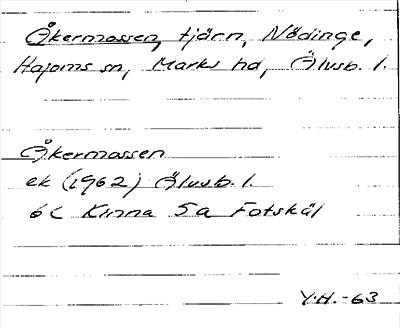 Åkermossen, tjärn, Nödinge,
Hajoms sn, Marks hd, Älvsb. l.
Åkermossen
ek (1962) Älvsb. l.
6C Kinna 5a Fotskäl
Y.H.-63